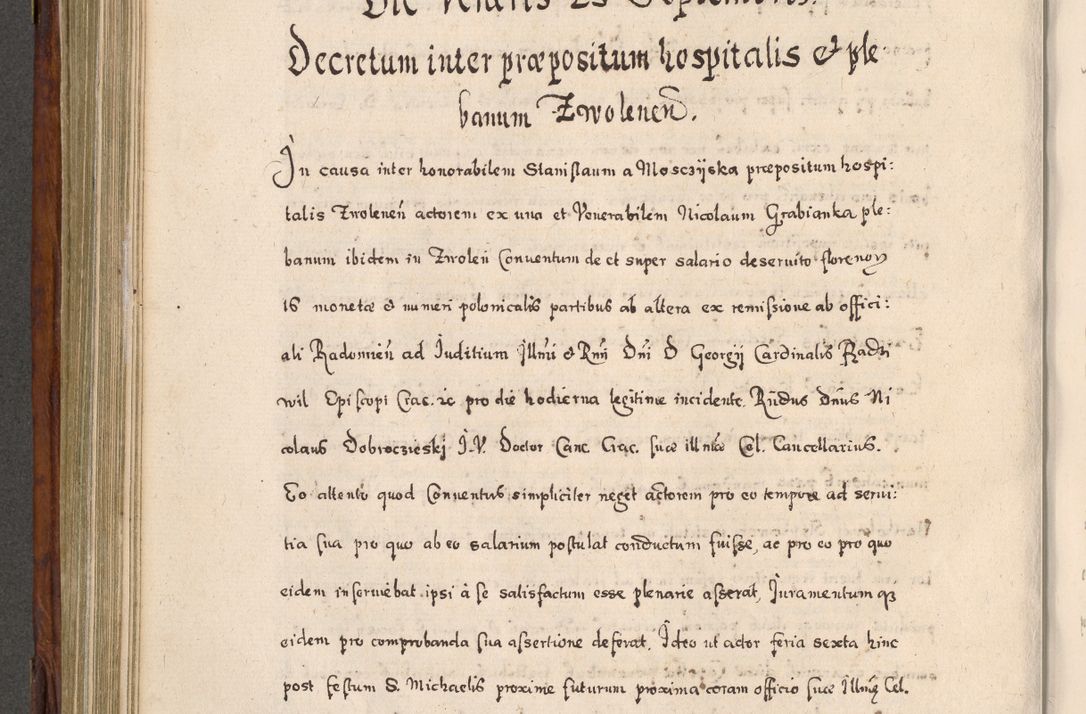 Die Veneris 25 Septembris.
Decretum inter præpositum hospitalis & ple
banum Zwolenen̄.
In causa inter honorabilem Stanislaum a Mosczijska præpositum hospi:
talis Zwolenen̄ actorem ex una et Venerabilem Nicolaum Grabianka ple:
banum ibidem in Zwolen̄ Conventum de et super salario deservito florenoꝝ
16 monetæ & numeri polonicalis partibus ab altera ex remissione ab offici:
ali Radomien̄ ad Iuditium Illmi & Rm̄i Dn̄i D Georgij Cardinalis Radzi
wil Episcopi Crac. &c pro die hodierna legitime incidente. Rn̄dus Dn̄us Ni
colaus Dobroczieski I.V. Doctor Canc. Crac. suæ illmæ Cel. Cancellarius.
Eo attento quod Conventus simpliciter neget actorem pro eo tempore ad servi:
tia sua pro quo ab eo salarium postulat conductum fuisse, ac pro eo pro quo
eidem inserviebat ipsi à se satisfactum esse plenarie asserat, Iuramentum qꝫ
eidem pro comprobanda sua assertione deferat. Ideo ut actor feria sexta hinc
post festum S. Michaelis proxime futurum proxima coram officio suæ Illmę Cel.